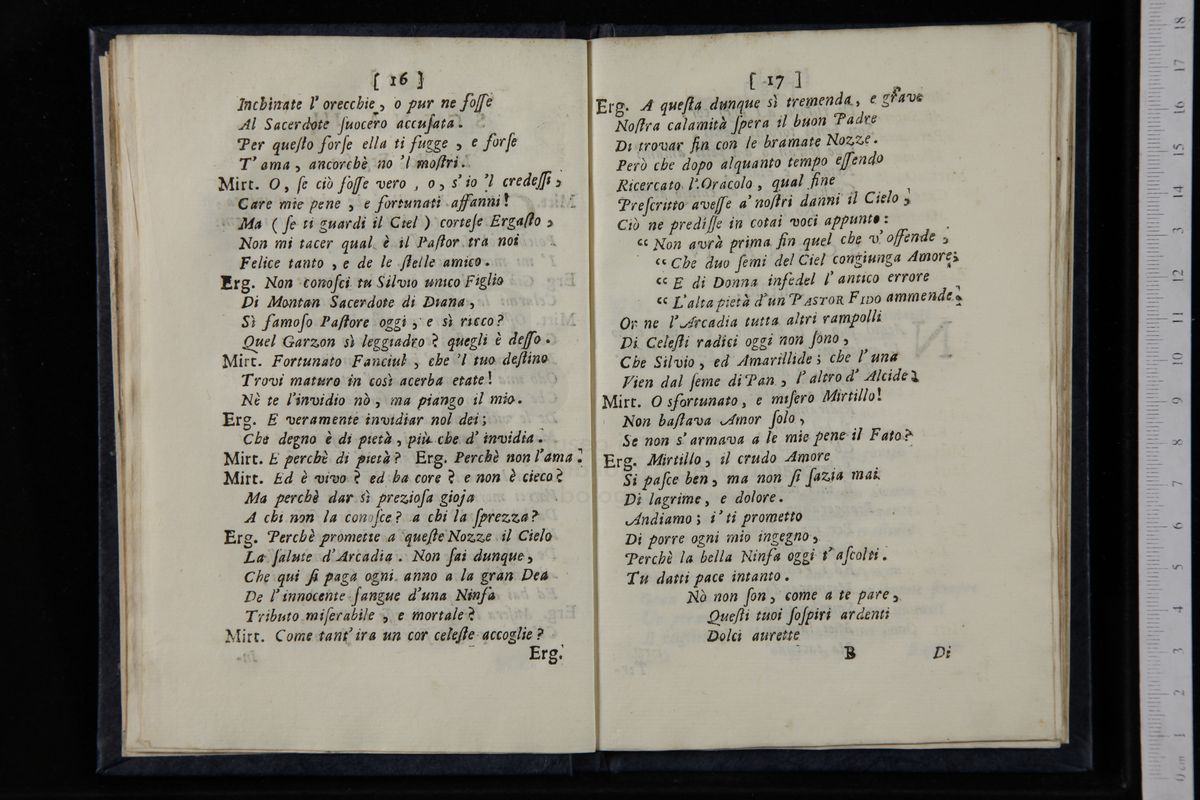 [ 16 ]
Inchinate l' orecchie, o pur ne foſſe
Al Sacerdote ſuocero accuſata.
Per queſto forſe ella ti fugge, e forſe
T' ama, ancorchè no 'l moſtri.
Mirt. O, ſe ciò foſſe vero, o, s' io 'l credeſſi,
Care mie pene, e fortunati affanni!
Ma ( ſe ti guardi il Ciel ) corteſe Ergaſto,
Non mi tacer qual è il Paſtor tra noi
Felice tanto, e de le ſtelle amico.
Erg. Non conoſci tu Silvio unico Figlio
Di Montan Sacerdote di Diana,
Sì famoſo Paſtore oggi, e sì ricco?
Quel Garzon sì leggiadro? quegli è deſſo.
Mirt. Fortunato Fanciul, che 'l tuo deſtino
Trovi maturo in così acerba etate!
Nè te l'invidio nò, ma piango il mio.
Erg. E veramente invidiar nol dei;
Che degno è di pietà, più che d' invidia.
Mirt. E perchè di pietà? Erg. Perchè non l'ama.
Mirt. Ed è vivo? ed ha core? e non è cieco?
Ma perchè dar sì prezioſa gioja
A chi non la conoſce? a chi la ſprezza?
Erg. Perchè promette a queſte Nozze il Cielo
La ſalute d'Arcadia. Non ſai dunque,
Che qui ſi paga ogni anno a la gran Dea
De l'innocente ſangue d'una Ninfa
Tributo miſerabile, e mortale?
Mirt. Come tant' ira un cor celeſte accoglie?
Erg.
[ 17 ]
Erg. A queſta dunque sì tremenda, e grave
Noſtra calamità ſpera il buon Padre
Di trovar fin con le bramate Nozze.
Però che dopo alquanto tempo eſſendo
Ricercato l'Oracolo, qual fine
Preſcritto aveſſe a' noſtri danni il Cielo,
Ciò ne prediſſe in cotai voci appunto:
“ Non avrà prima fin quel che v' offende,
“ Che duo ſemi del Ciel congiunga Amore;
“ E di Donna infedel l' antico errore
“ L'alta pietà d'un PASTOR FIDO ammende.
Or ne l'Arcadia tutta altri rampolli
Di Celeſti radici oggi non ſono,
Che Silvio, ed Amarillide; che l' una
Vien dal ſeme di Pan, l' altro d' Alcide.
Mirt. O sfortunato, e miſero Mirtillo!
Non baſtava Amor ſolo,
Se non s' armava a le mie pene il Fato?
Erg. Mirtillo, il crudo Amore
Si paſce ben, ma non ſi ſazia mai
Di lagrime, e dolore.
Andiamo; i' ti prometto
Di porre ogni mio ingegno,
Perchè la bella Ninfa oggi t' aſcolti.
Tu datti pace intanto.
Nò non ſon, come a te pare,
Queſti tuoi ſoſpiri ardenti
Dolci aurette
B Di
0 cm 1 2 3 4 5 6 7 8 9 10 11 12 13 14 15 16 17 18